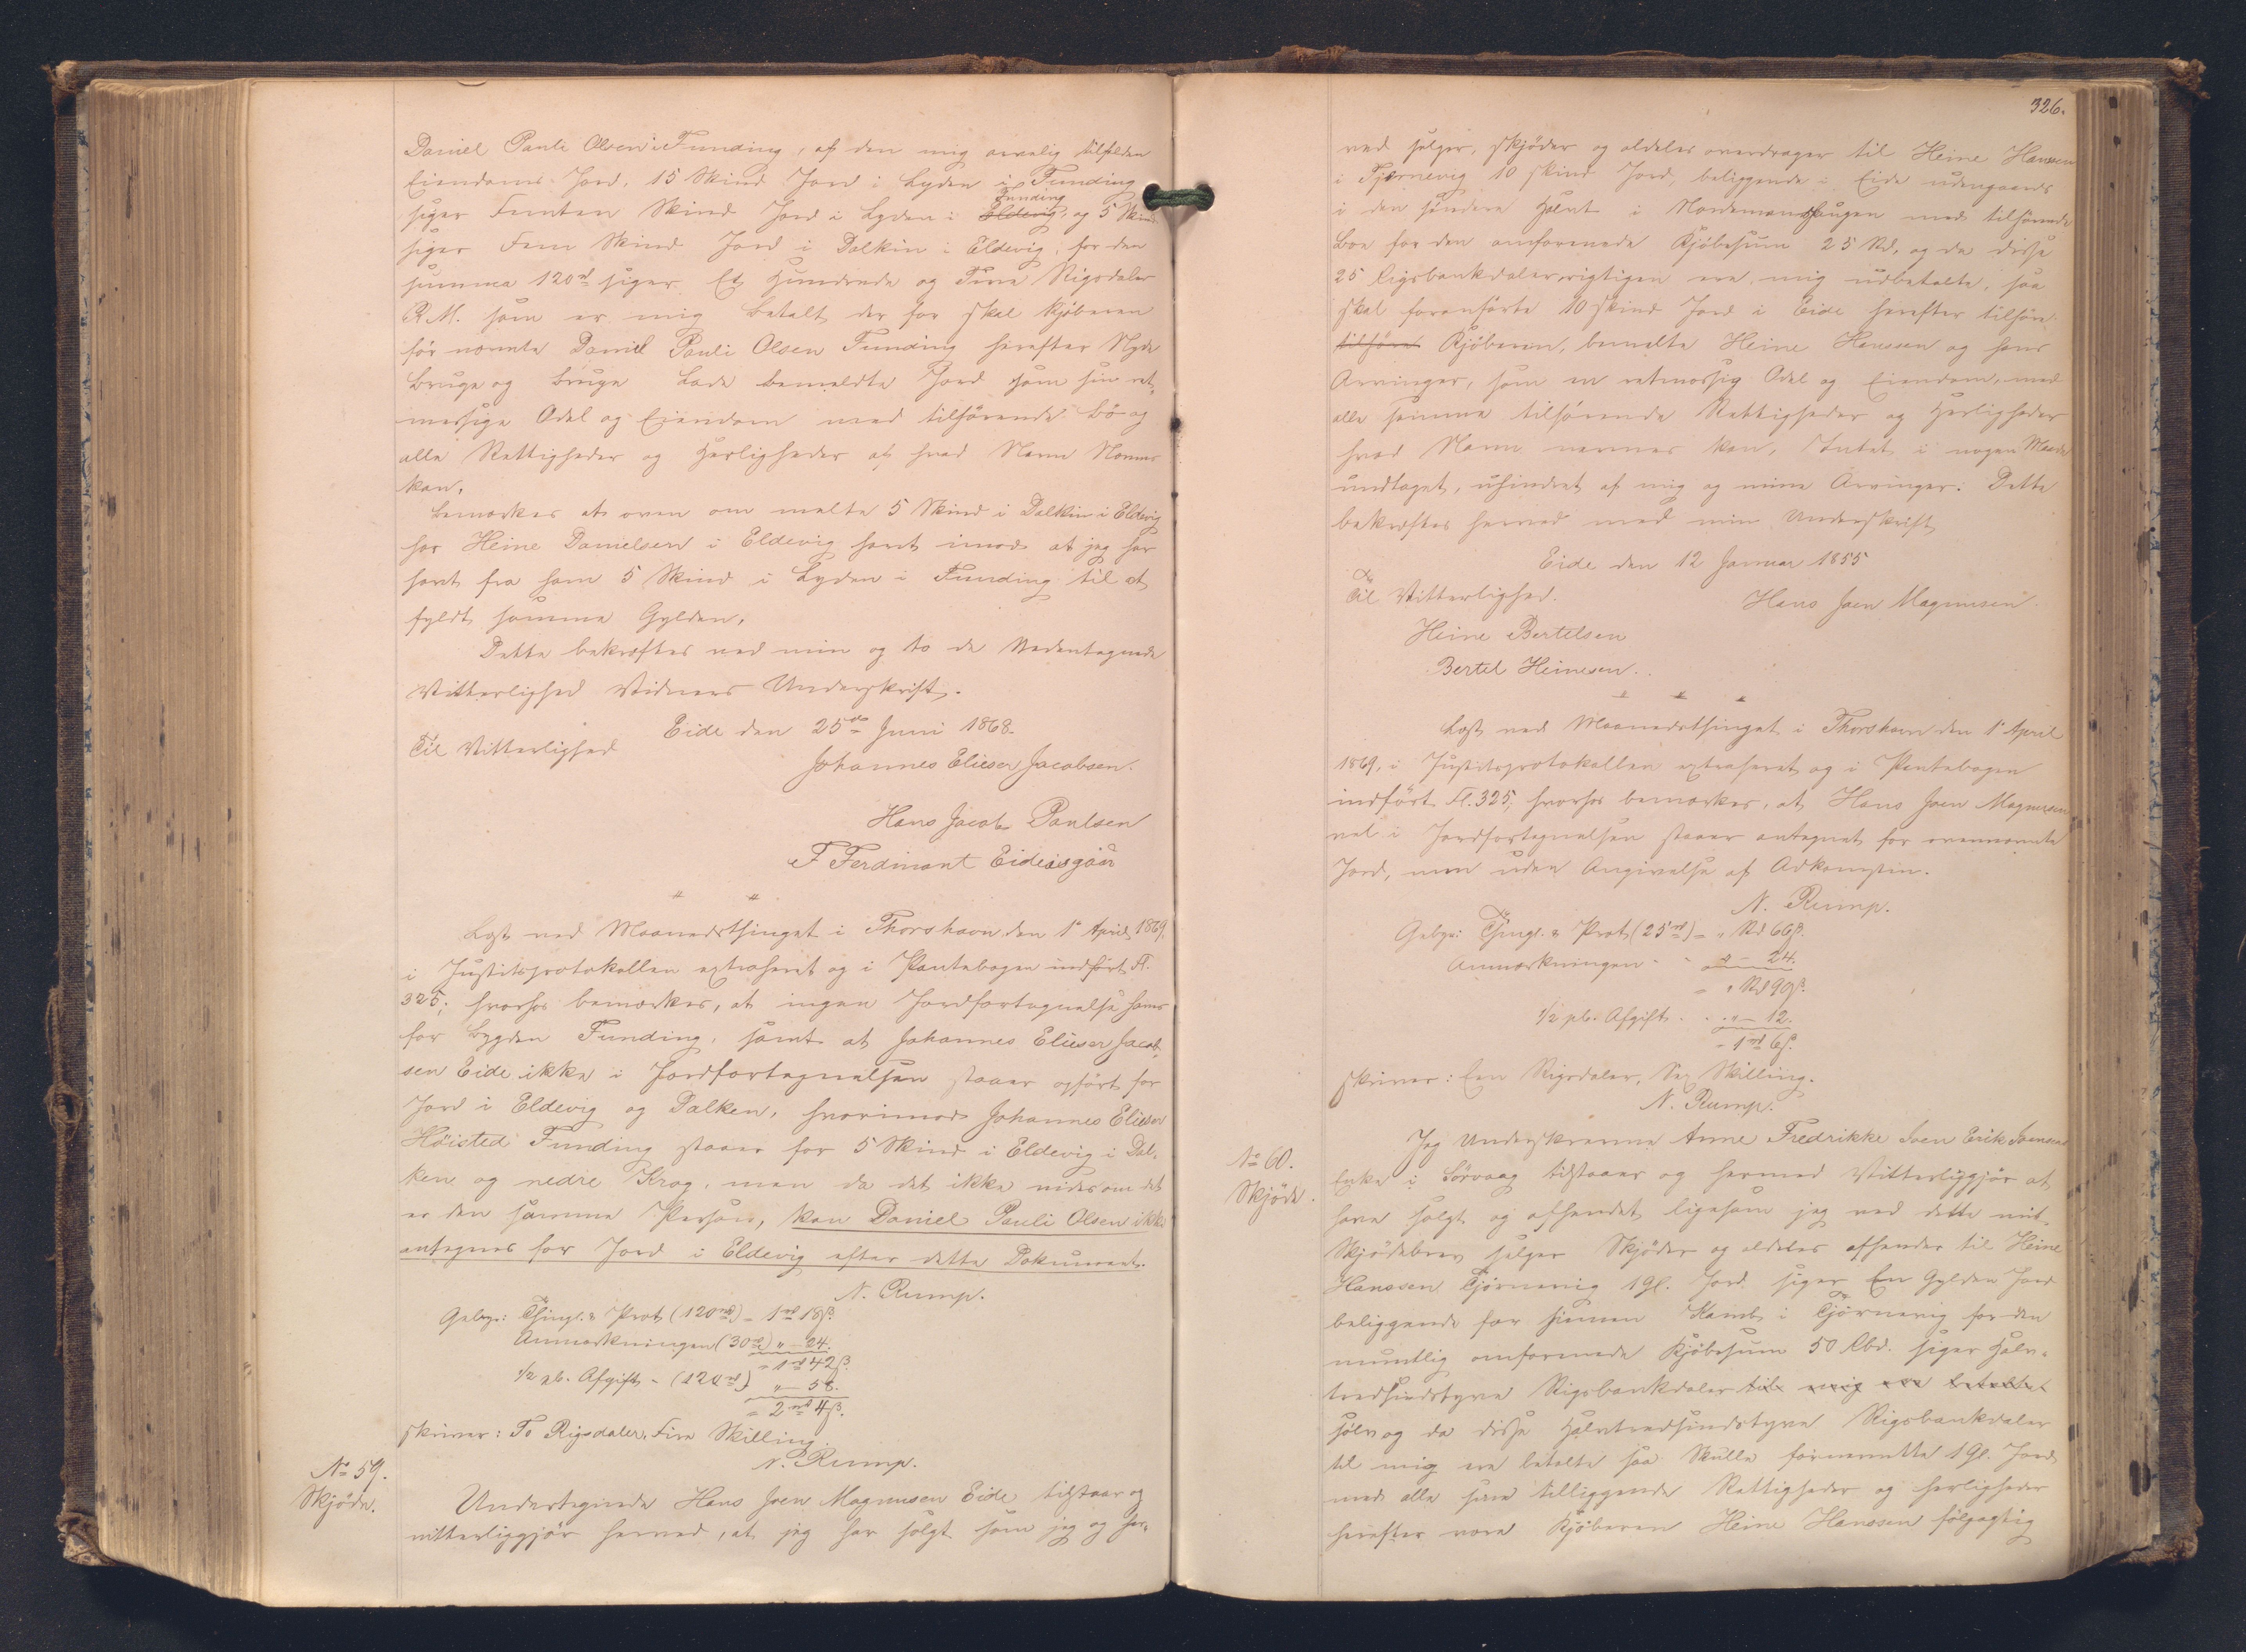 Daniel Pauli Olsen i Funding, af den mig arvelig tilfalden
Eiendoms Jord, 15 Skind Jord i Lyden i Funding
siger Femten Skind Jord i Lyden i Eldevig Funding, og 5 Skind
siger Fem Skind Jord i Dalkin i Eldevig, for den
summa 120 rd siger Et Hundrede og Tive Rigsdaler
R.M. som er mig betalt, der for skal Kjøberen
før nævnte Daniel Pauli Olsen Funding herefter Nyde
bruge og bruge lade bemeldte Jord som sin ret-
mæssige Odel og Eiendom med tilhørende bø og
alle Rettigheder og Herligheder af hvad Navn Nævnes
kan.
Bemærkes at oven om meldte 5 Skind i Dalkin i Eldevig
har Heine Danielsen i Eldevig havt imod at jeg har
havt fra ham 5 Skind i Lyden i Funding til at
fyldt samme Gylden.
Dette bekræftes ved min og to de Nedentegnede
Vitterlighed Vidners Underskrift.
Eide den 25de Juni 1868.
Til Vitterlighed
Johannes Elieser Jacobsen.
Hans Jacob Poulsen
F Ferdinant Eideisgaar
Læst ved Maanedsthinget i Thorshavn den 1e April 1869,
i Justitsprotokollen extraheret og i Pantebogen indført Fl.
325; hvorhos bemærkes, at ingen Jordfortegnelse haves
for bygden Funding, samt at Johannes Elieser Jacob-
sen Eide ikke i Jordfortegnelsen staaer opført for
Jord i Eldevig og Dalken, hvorimod Johannes Elieser
Høisted Funding staaer for 5 Skind i Eldevig i Dal-
ken og nedre Krog, men da det ikke vides om det
er den samme Person, kan Daniel Pauli Olsen ikke
antegnes for Jord i Eldevig efter dette Dokument.
N. Rump.
Gebyr: Thingl. & Prot (120 rd) = 1 rd 18 ß.
Anmærkningen (30 rd) " - 24.
= 1 rd 42 ß.
1/2 pC. Afgift - (120 rd) " - 58.
= 2 rd 4 ß.
skriver: To Rigsdaler, Fire Skilling.
N. Rump.
No 59.
Skjøde.
Undertegnede Hans Joen Magnusen Eide tilstaar og
vitterliggjør herved, at jeg har solgt som jeg og her-
326.
ved sælger, skjøder og aldeles overdrager til Heine Hansen
i Tjørnevig 10 skind Jord, beliggende i Eide udengaards
i den søndere Halvt i Nordemandshaugen med tilhørende
Bøe for den omforenede Kjøbesum 25 Rd, og da disse
25 Rigsbankdaler rigtigen ere mig udbetalte, saa
skal foranførte 10 skind Jord i Eide herefter tilhøre
tilhøre Kjøberen, bemeldte Heine Hanssen og hans
Arvinger, som en retmæssig Odel og Eiendom, med
alle samme tilhørende Rettigheder og Herligheder
hvad Navn nævnes kan, Intet i nogen Maade
undtaget, uhindret af mig og mine Arvinger. Dette
bekræftes herved med min Underskrift
Eide den 12 Januar 1855
Til Vitterlighed.
Hans Joen Magnusen.
Heine Bertelsen
Bertel Heinesen.
Læst ved Maanedsthinget i Thorshavn den 1e April
1869, i Justitsprotokollen extraheret og i Pantebogen
indført Fl. 325, hvorhos bemærkes, at Hans Joen Magnusen
vel i Jordfortegnelsen staaer antegnet for ovennævnte
Jord, men uden Angivelse af Adkomsten.
N. Rump.
Gebyr: Thingl. & Prot (25 rd) = " Rd 66 ß.
Anmærkningen - " - 24.
= " Rd 90 ß.
1/2 pC. Afgift - " - 12.
= 1 rd 6 ß.
skriver: Een Rigsdaler, Sex Skilling.
N. Rump.
No 60.
Skjøde.
Jeg Underskrevne Anne Fredrikke Sven Erik Svensens
Enke i Sørvaag tilstaaer og hermed Vitterliggjør at
have solgt og afhendet ligesom jeg ved dette mit
Skjødebrev sælger Skjøder og aldeles afhender til Heine
Hanssen Tjørnevig 1 Gl. Jord siger En Gylden Jord
beliggende for hiemen Kamb i Tjørnevig for den
mundtlig omforenede Kjøbesum 50 Rbd. siger Halv-
tredsindstyve Rigsbankdaler til mig ere betalte
sølv og da disse Halvtredsindstyve Rigsbankdaler
til mig ere betalte saa Skulle fornævnte 1 Gl. Jord
med alle sine tilliggende Rettigheder og Herligheder
herefter være Kjøberen Heine Hanssen følgagtig